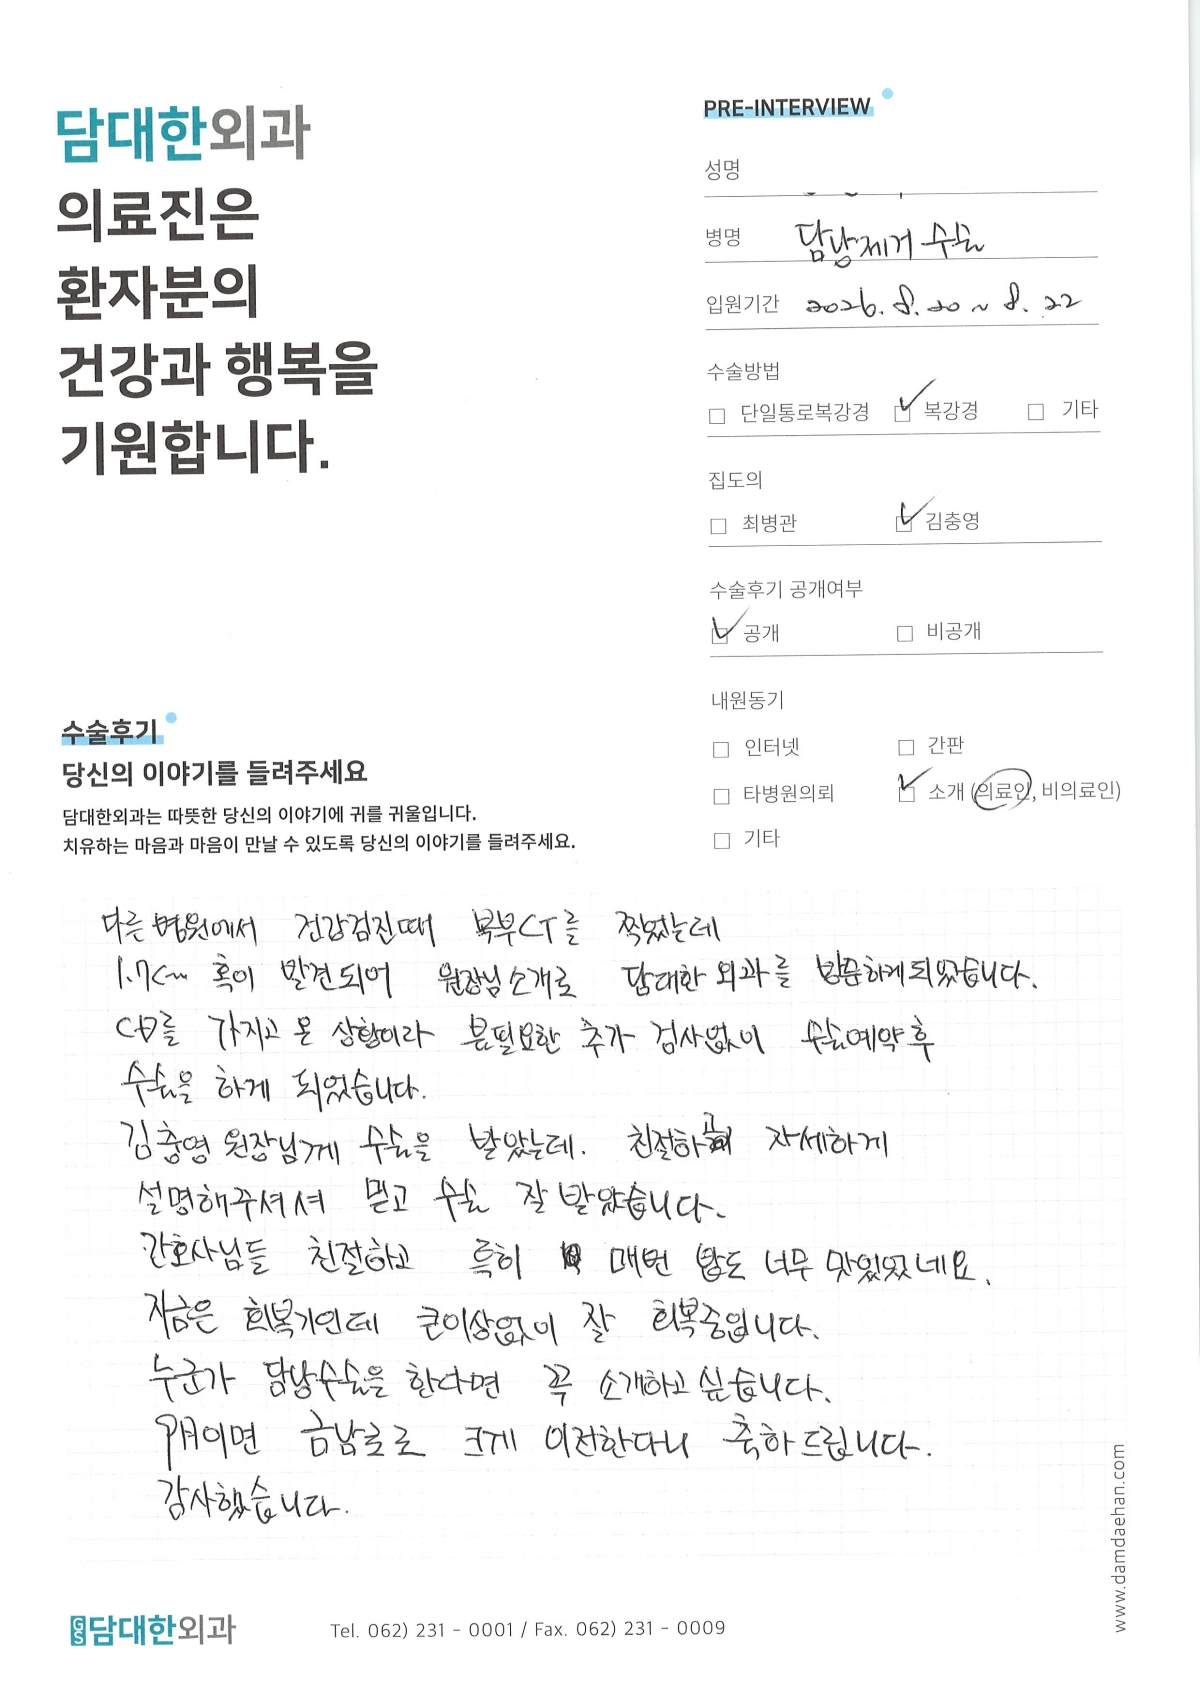 담대한외과
의료진은
환자분의
건강과 행복을
기원합니다.
PRE-INTERVIEW
성명
병명 담낭제거 수술
입원기간 2026. 8. 20 ~ 8. 22
수술방법
□ 단일통로복강경 ☑ 복강경 □ 기타
집도의
□ 최병관 ☑ 김충영
수술후기 공개여부
☑ 공개 □ 비공개
내원동기
□ 인터넷 □ 간판
□ 타병원의뢰 ☑ 소개 (의료인, 비의료인)
□ 기타
수술후기
당신의 이야기를 들려주세요
담대한외과는 따뜻한 당신의 이야기에 귀를 귀울입니다.
치유하는 마음과 마음이 만날 수 있도록 당신의 이야기를 들려주세요.
다른 병원에서 건강검진때 복부CT를 찍었는데
1.7cm 혹이 발견되어 원장님소개로 담대한 외과를 방문하게되었습니다.
CD를 가지고 온 상황이라 불필요한 추가 검사없이 수술예약후
수술을 하게 되었습니다.
김충영 원장님께 수술을 받았는데. 친절하고 자세하게
설명해주셔서 믿고 수술 잘 받았습니다.
간호사님들 친절하고 특히 매번 밥도 너무 맛있었네요.
지금은 회복기인데 큰이상없이 잘 회복중입니다.
누군가 담낭수술을 한다면 꼭 소개하고 싶습니다.
9月이면 금남로로 크게 이전한다니 축하드립니다.
감사했습니다.
GS담대한외과
Tel. 062) 231 - 0001 / Fax. 062) 231 - 0009
www.damdaehan.com